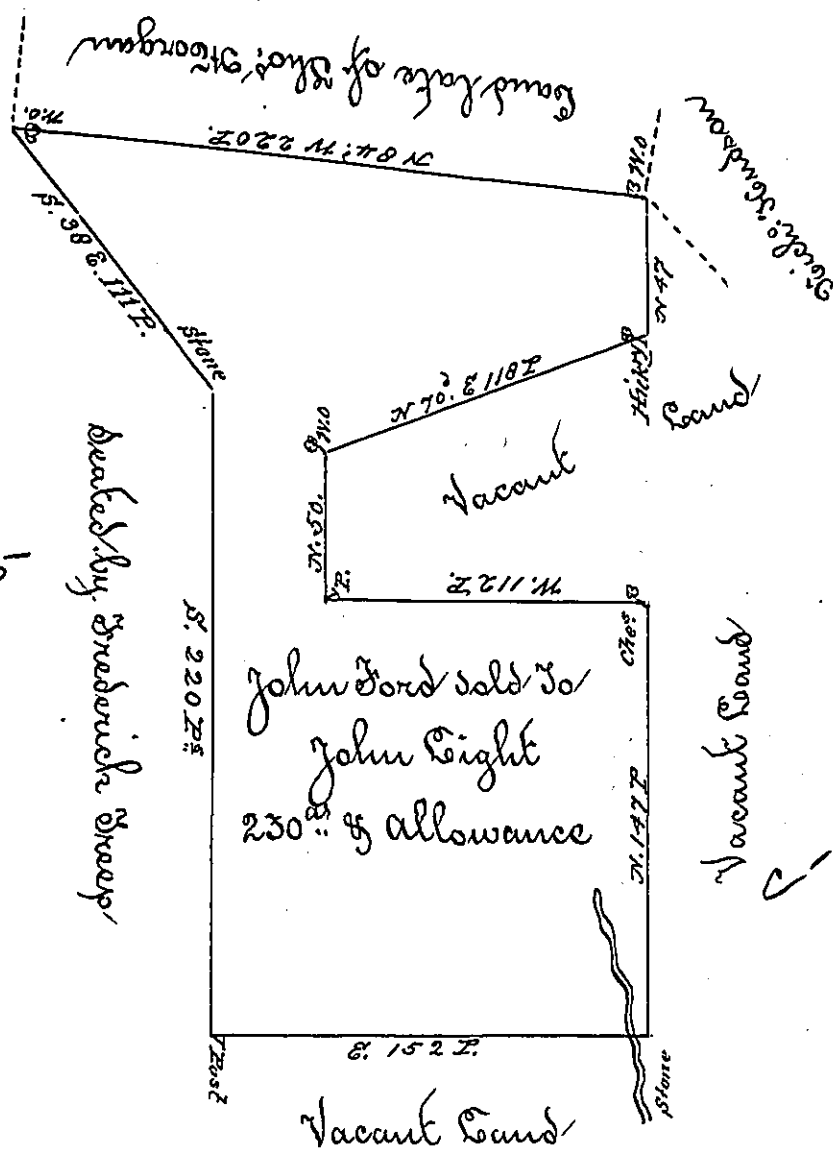 Land late of Thos. Morgan
W.O.
N 84° W 220 P.
B W.O
Richd. Hendson
S. 38 E. 111 P.
Stone
N 47
Hicky.
N 70° E 118 P
W.O
Vacant
Land
N. 50.
P.
W. 112 P.
Ches.
Seated by Frederick Treep
S. 220 Ps
John Ford sold To
John Light
230 as. & Allowance
N. 147 P
Vacant Land
Post
E. 152 P.
Stone
Vacant Land